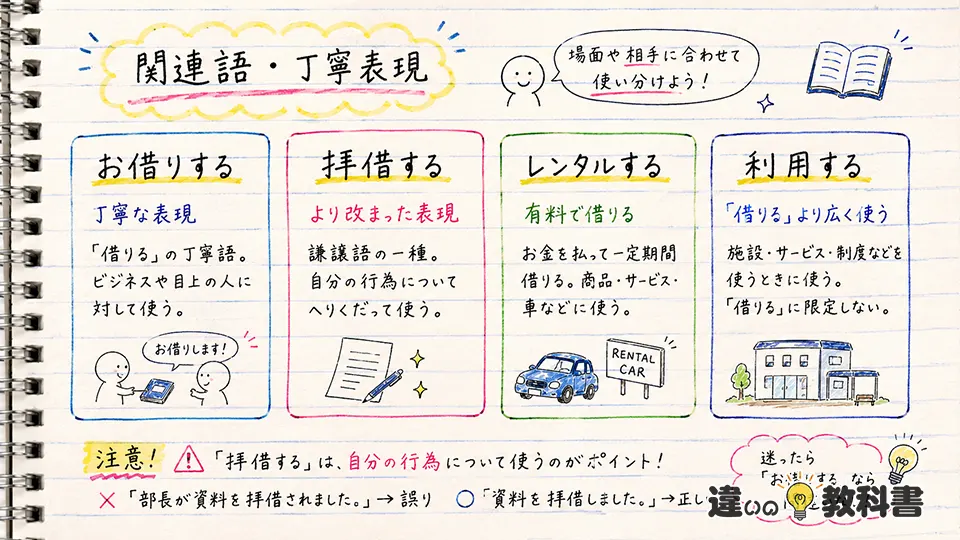 関連語・丁寧表現
場面や相手に合わせて
使い分けよう！
お借りする
丁寧な表現
「借りる」の丁寧語。
ビジネスや目上の人に
対して使う。
お借りします！
拝借する
より改まった表現
謙譲語の一種。
自分の行為について
へりくだって使う。
レンタルする
有料で借りる
お金を払って一定期間
借りる。商品・サービス・
車などに使う。
RENTAL
CAR
利用する
「借りる」より広く使う
施設・サービス・制度などを
使うときに使う。
「借りる」に限定しない。
注意！
「拝借する」は、自分の行為について使うのがポイント！
×「部長が資料を拝借されました。」→誤り
○「資料を拝借しました。」→正し
迷ったら
「お借りする なら
違いの教科書